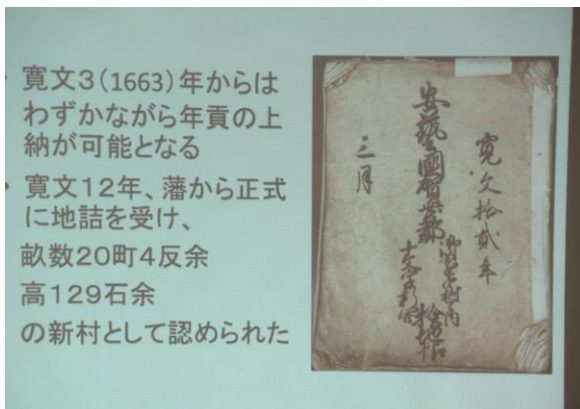 ・寛文3(1663)年からは
わずかながら年貢の上
納が可能となる
・寛文12年、藩から正式
に地詰を受け、
畝数20町4反余
高129石余
の新村として認められた
寛文拾貳年
安藝國賀茂郡
三月